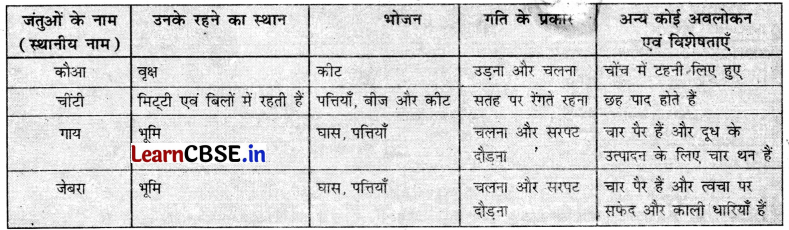 जंतुओं के नाम (स्थानीय नाम) | उनके रहने का स्थान | भोजन | गति के प्रकार | अन्य कोई अवलोकन एवं विशेषताएँ
कौआ | वृक्ष | कीट | उड़ना और चलना | चोंच में टहनी लिए हुए
चींटी | मिट्टी एवं बिलों में रहती हैं | पत्तियाँ, बीज और कीट | सतह पर रेंगते रहना | छह पाद होते हैं
गाय | भूमि | घास, पत्तियाँ | चलना और सरपट दौड़ना | चार पैर हैं और दूध के उत्पादन के लिए चार थन हैं
LearnCBSE.in
जेबरा | भूमि | घास, पत्तियाँ | चलना और सरपट दौड़ना | चार पैर हैं और त्वचा पर सफेद और काली धारियाँ हैं